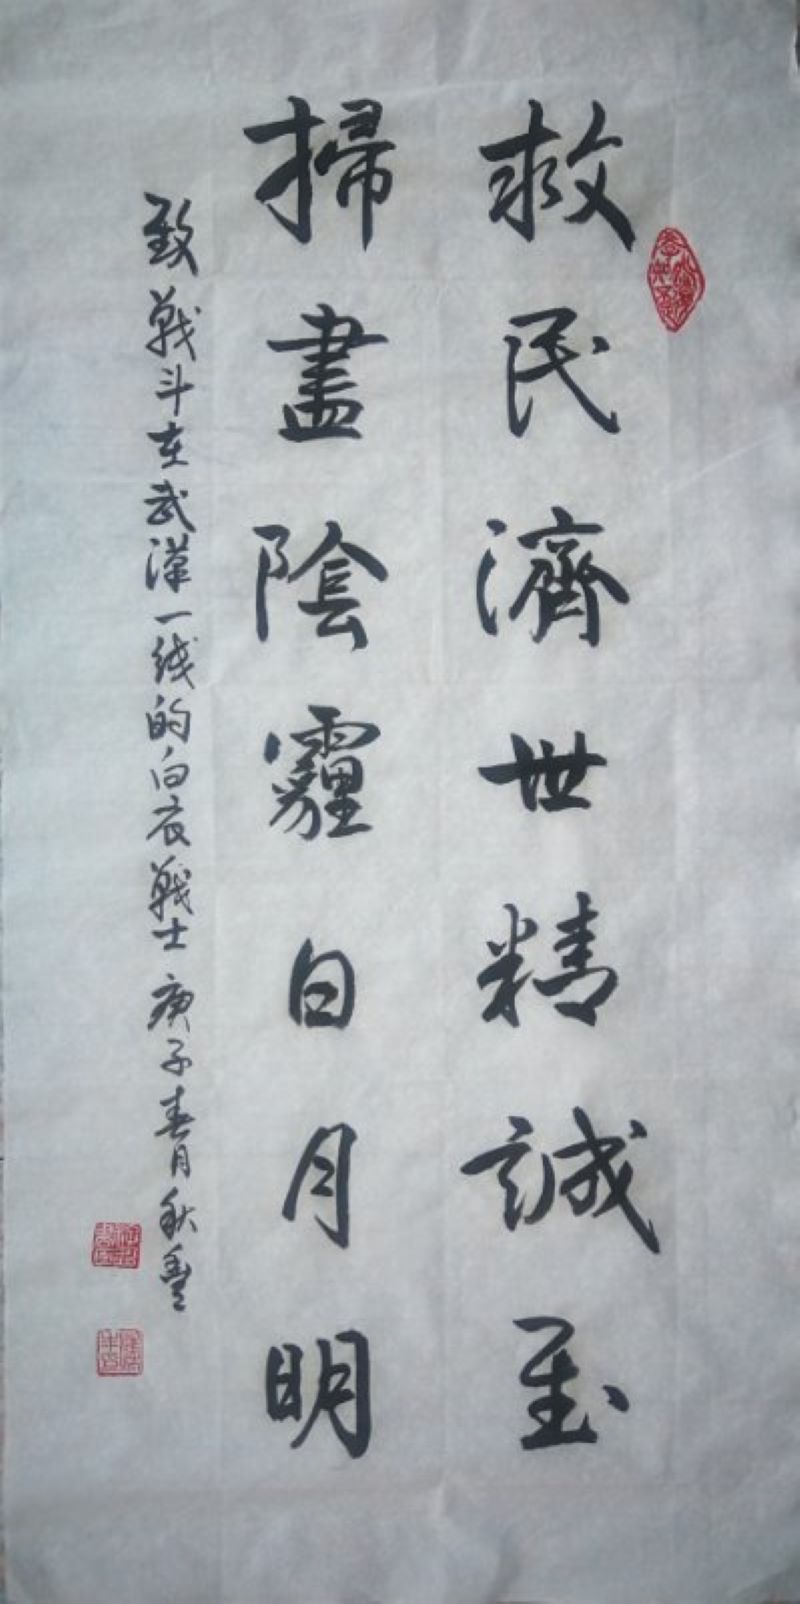 救民濟世精誠至
掃盡陰霾日月明
致戰斗在武漢一线的白衣戰士 庚子春月秋豐